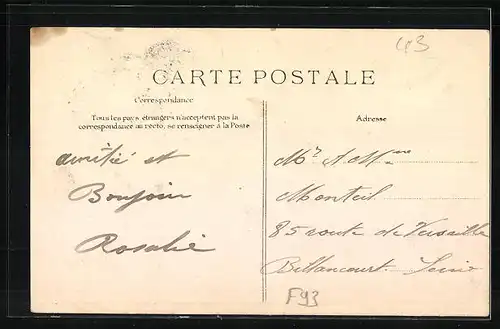 43
CARTE POSTALE
Correspondance
Tous les pays étrangers n'acceptent pas la
correspondance au recto, se renseigner à la Poste
Adresse
amitié et
Bonjour
Rosalie
Mr & Mme
Monteil
85 route de Versaille
Billancourt. Seine
F93